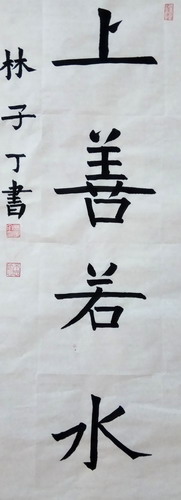 上善若水
林子丁書